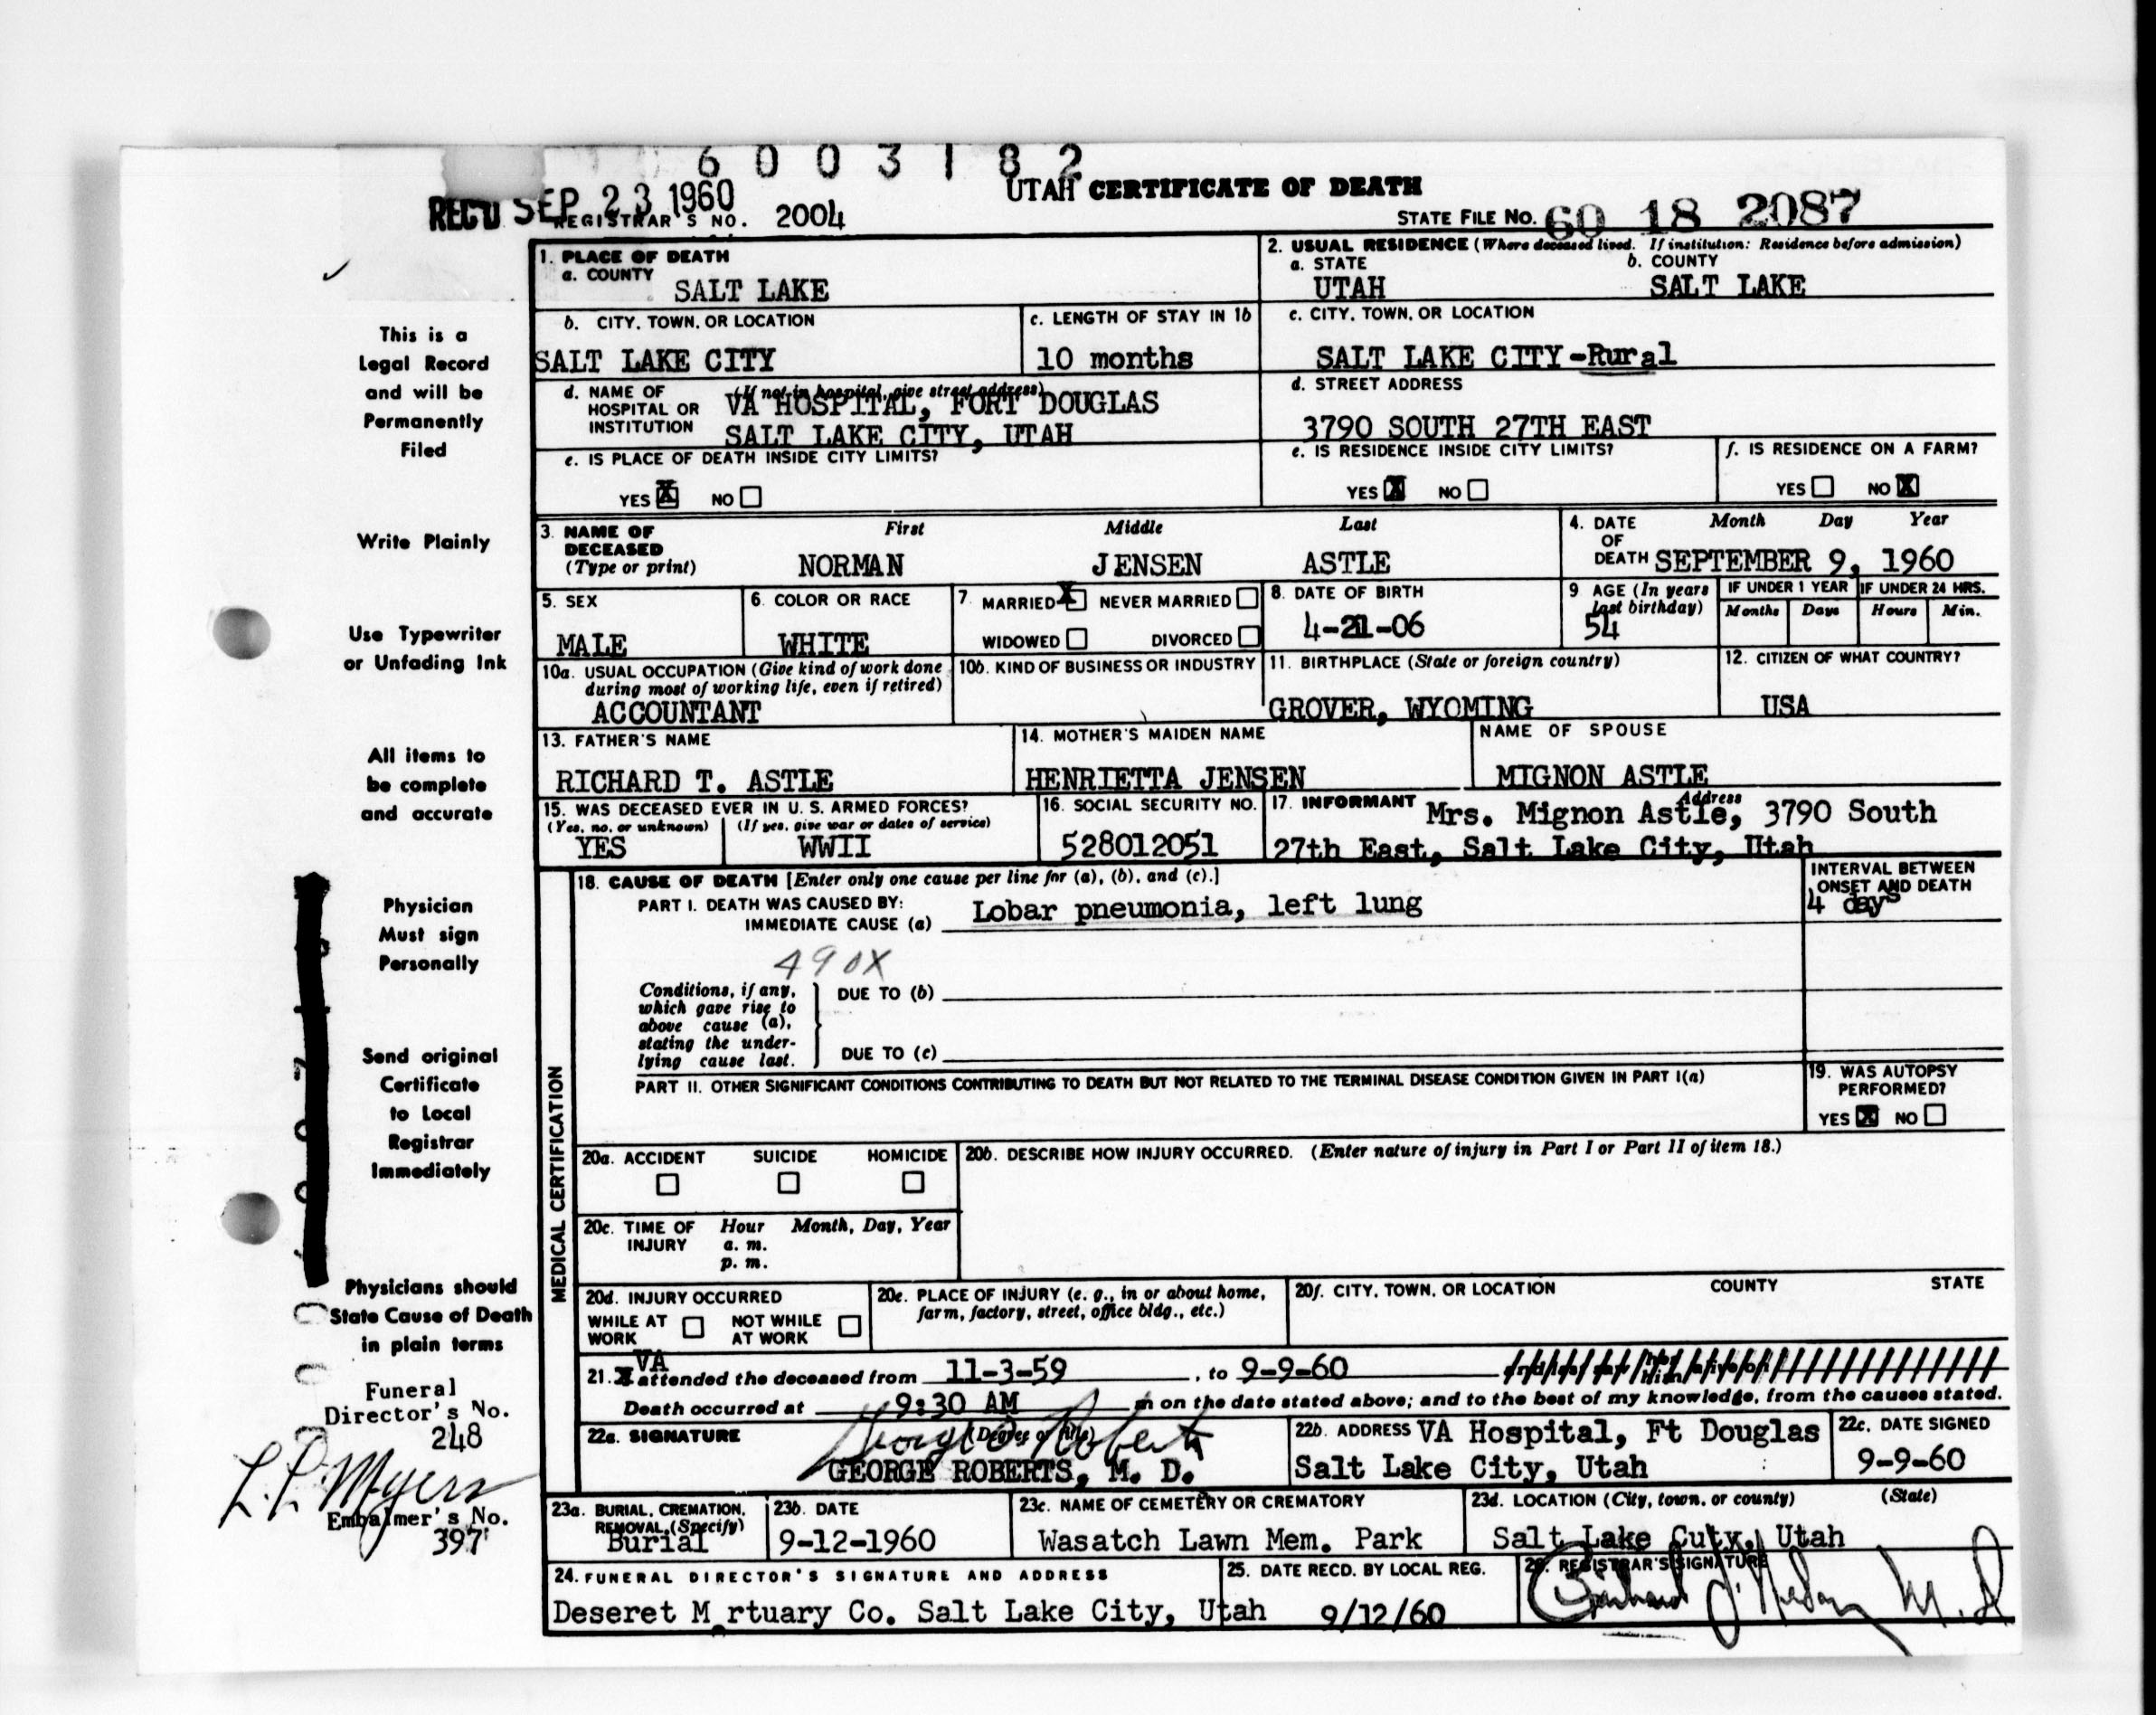 6 0 0 3 1 8 2
REC'D SEP 23 1960
UTAH CERTIFICATE OF DEATH
REGISTRAR'S NO. 2004
STATE FILE NO. 60 18 2087
1. PLACE OF DEATH
a. COUNTY
SALT LAKE
2. USUAL RESIDENCE (Where deceased lived. If institution: Residence before admission)
a. STATE b. COUNTY
UTAH SALT LAKE
b. CITY, TOWN, OR LOCATION
SALT LAKE CITY
c. LENGTH OF STAY IN 1b
10 months
c. CITY, TOWN, OR LOCATION
SALT LAKE CITY-Rural
d. NAME OF HOSPITAL OR INSTITUTION (If not in hospital, give street address)
VA HOSPITAL, FORT DOUGLAS
SALT LAKE CITY, UTAH
d. STREET ADDRESS
3790 SOUTH 27TH EAST
e. IS PLACE OF DEATH INSIDE CITY LIMITS?
YES X NO
e. IS RESIDENCE INSIDE CITY LIMITS?
YES X NO
f. IS RESIDENCE ON A FARM?
YES NO X
3. NAME OF DECEASED (Type or print)
First Middle Last
NORMAN JENSEN ASTLE
4. DATE OF DEATH Month Day Year
SEPTEMBER 9, 1960
5. SEX
MALE
6. COLOR OR RACE
WHITE
7. MARRIED X NEVER MARRIED
WIDOWED DIVORCED
8. DATE OF BIRTH
4-21-06
9 AGE (In years last birthday)
54
IF UNDER 1 YEAR IF UNDER 24 HRS.
Months Days Hours Min.
10a. USUAL OCCUPATION (Give kind of work done during most of working life, even if retired)
ACCOUNTANT
10b. KIND OF BUSINESS OR INDUSTRY
11. BIRTHPLACE (State or foreign country)
GROVER, WYOMING
12. CITIZEN OF WHAT COUNTRY?
USA
13. FATHER'S NAME
RICHARD T. ASTLE
14. MOTHER'S MAIDEN NAME
HENRIETTA JENSEN
NAME OF SPOUSE
MIGNON ASTLE
15. WAS DECEASED EVER IN U. S. ARMED FORCES?
(Yes, no, or unknown) (If yes, give war or dates of service)
YES WWII
16. SOCIAL SECURITY NO.
528012051
17. INFORMANT Address
Mrs. Mignon Astle, 3790 South
27th East, Salt Lake City, Utah
MEDICAL CERTIFICATION
18. CAUSE OF DEATH [Enter only one cause per line for (a), (b), and (c).]
PART I. DEATH WAS CAUSED BY:
IMMEDIATE CAUSE (a) Lobar pneumonia, left lung
INTERVAL BETWEEN ONSET AND DEATH
4 days
490X
Conditions, if any, which gave rise to above cause (a), stating the underlying cause last.
DUE TO (b)
DUE TO (c)
PART II. OTHER SIGNIFICANT CONDITIONS CONTRIBUTING TO DEATH BUT NOT RELATED TO THE TERMINAL DISEASE CONDITION GIVEN IN PART I(a)
19. WAS AUTOPSY PERFORMED?
YES X NO
20a. ACCIDENT SUICIDE HOMICIDE
20b. DESCRIBE HOW INJURY OCCURRED. (Enter nature of injury in Part I or Part II of item 18.)
20c. TIME OF INJURY Hour Month, Day, Year
a. m.
p. m.
20d. INJURY OCCURRED
WHILE AT WORK NOT WHILE AT WORK
20e. PLACE OF INJURY (e. g., in or about home, farm, factory, street, office bldg., etc.)
20f. CITY, TOWN, OR LOCATION COUNTY STATE
21. VA attended the deceased from 11-3-59, to 9-9-60
Death occurred at 9:30 AM m on the date stated above; and to the best of my knowledge, from the causes stated.
22a. SIGNATURE (Degree or title)
George Roberts
GEORGE ROBERTS, M. D.
22b. ADDRESS VA Hospital, Ft Douglas
Salt Lake City, Utah
22c. DATE SIGNED
9-9-60
23a. BURIAL, CREMATION, REMOVAL (Specify)
Burial
23b. DATE
9-12-1960
23c. NAME OF CEMETERY OR CREMATORY
Wasatch Lawn Mem. Park
23d. LOCATION (City, town, or county) (State)
Salt Lake Cuty, Utah
24. FUNERAL DIRECTOR'S SIGNATURE AND ADDRESS
Deseret M rtuary Co. Salt Lake City, Utah
25. DATE RECD. BY LOCAL REG.
9/12/60
26. REGISTRAR'S SIGNATURE
This is a
Legal Record
and will be
Permanently
Filed
Write Plainly
Use Typewriter
or Unfading Ink
All items to
be complete
and accurate
Physician
Must sign
Personally
Send original
Certificate
to Local
Registrar
Immediately
Physicians should
State Cause of Death
in plain terms
Funeral
Director's No.
248
L. P. Myers
Embalmer's No.
397